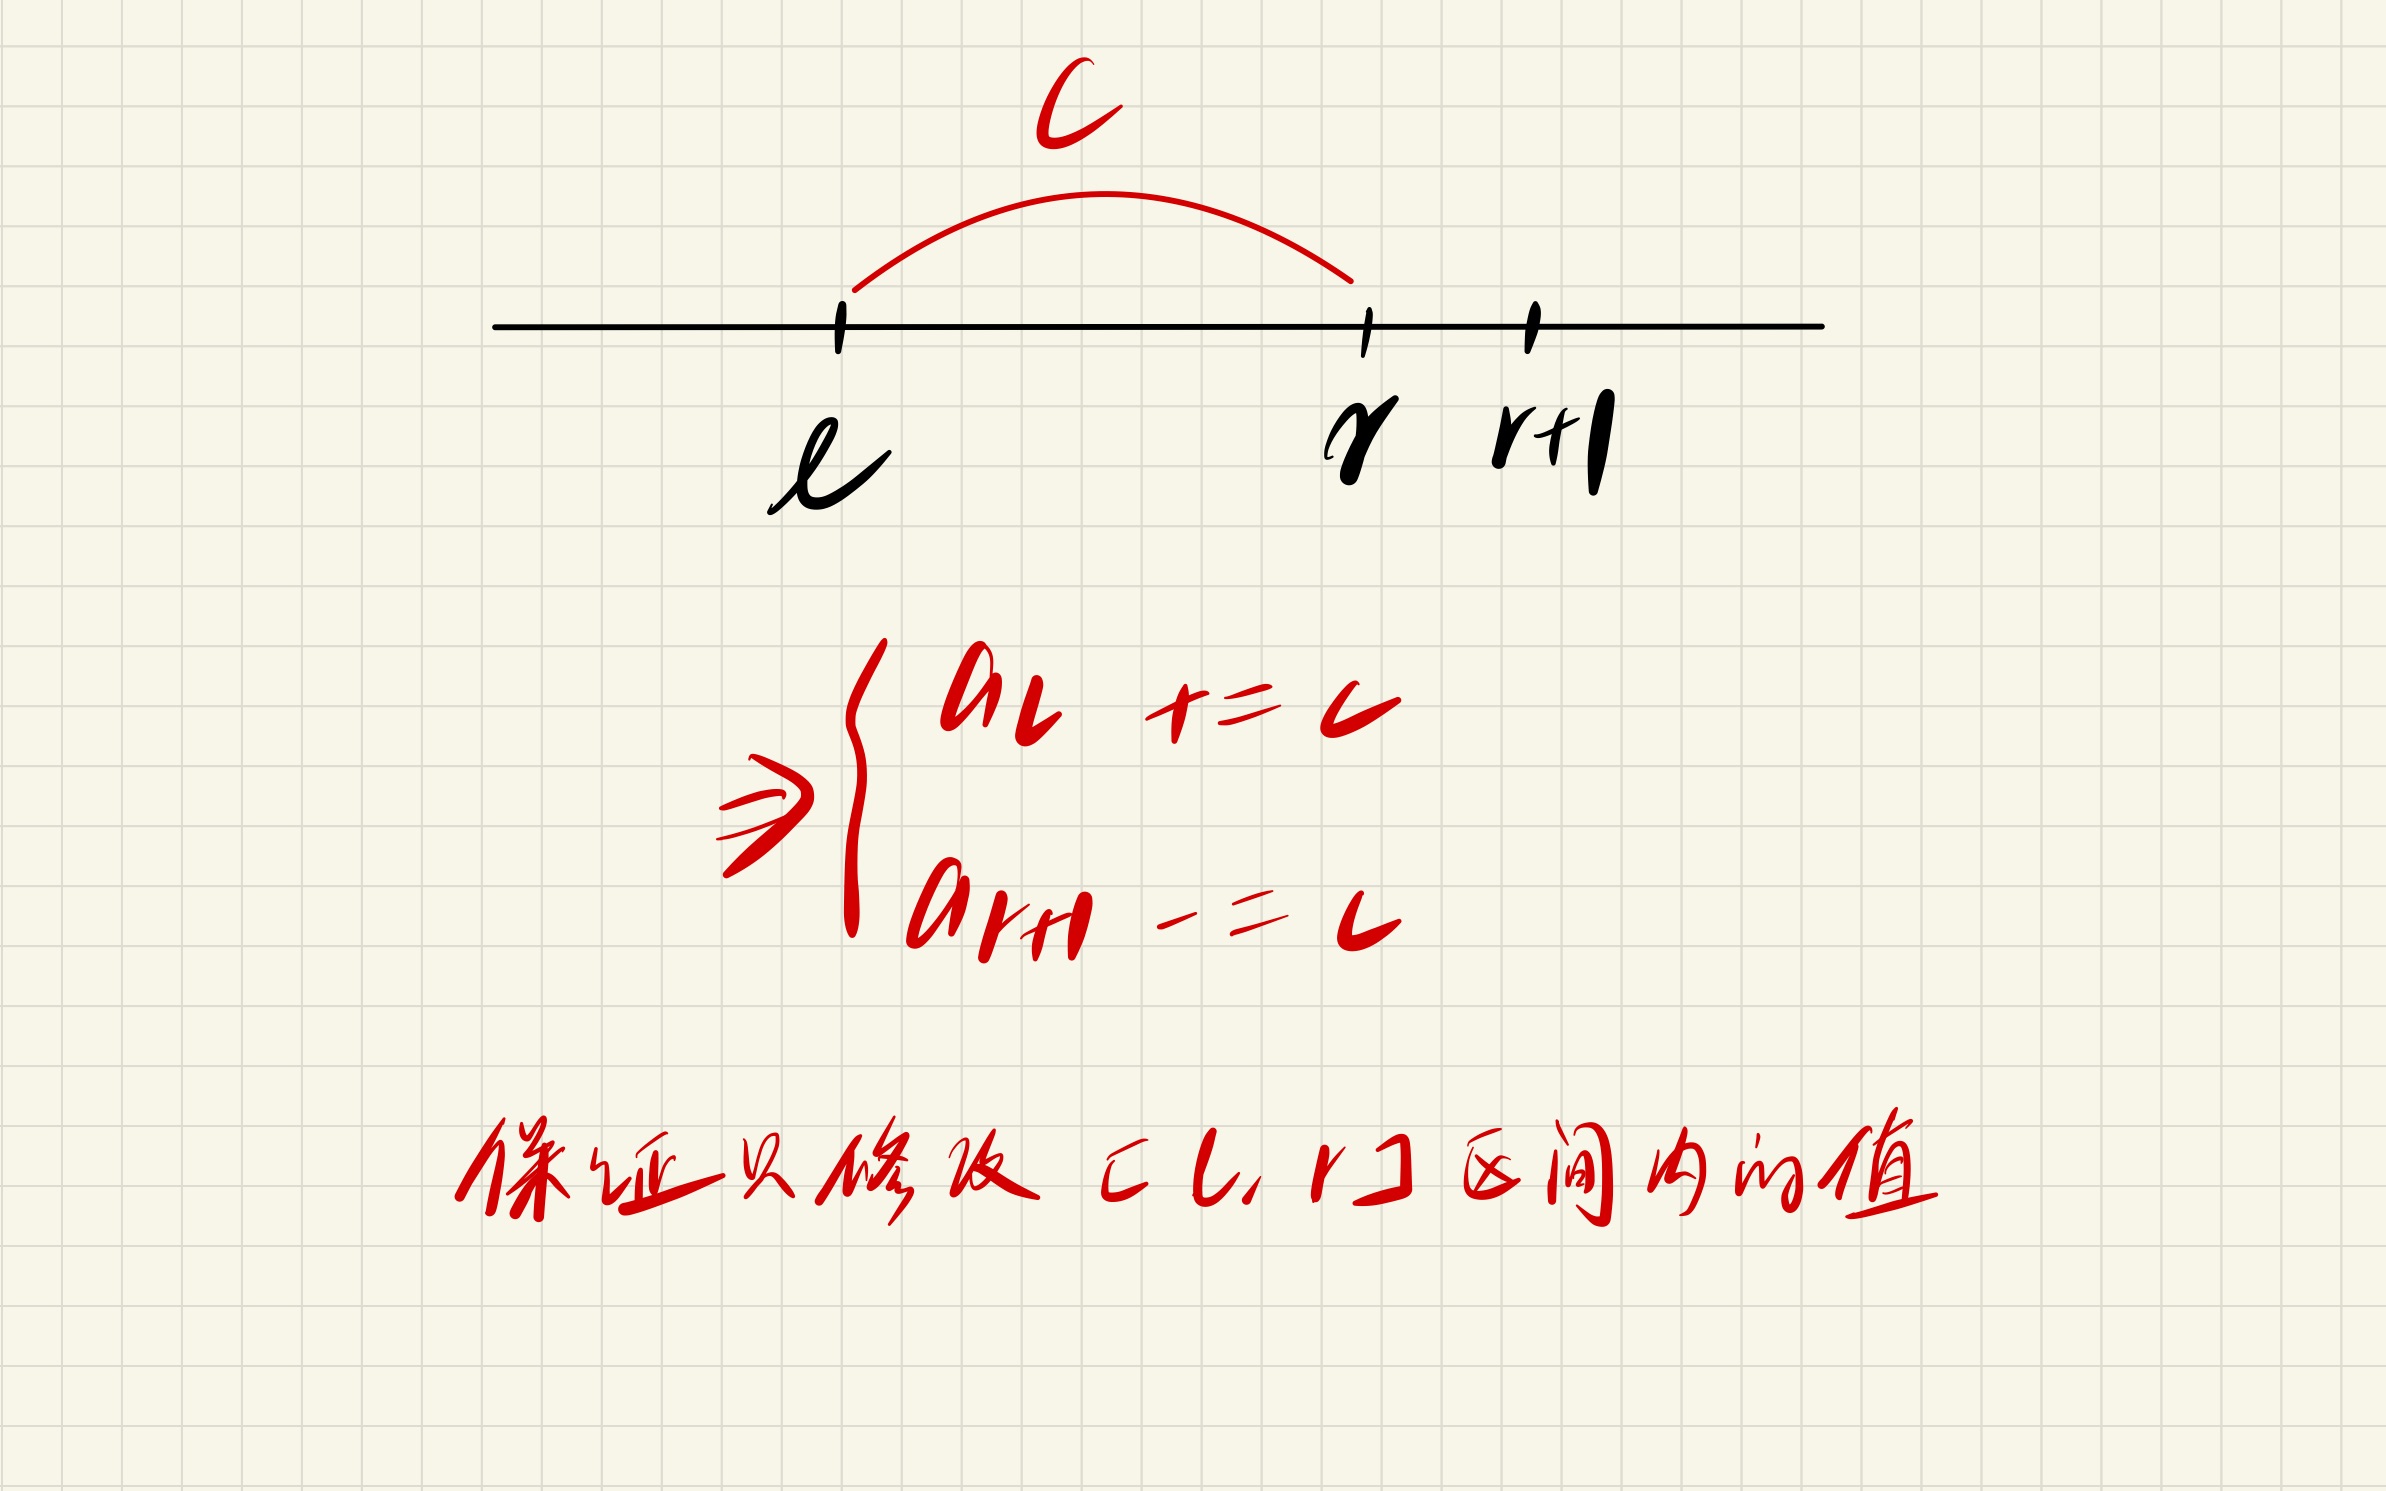 C
l r r+1
⇒ { aL += c
ar+1 -= c
保证只修改 [l, r] 区间内的值